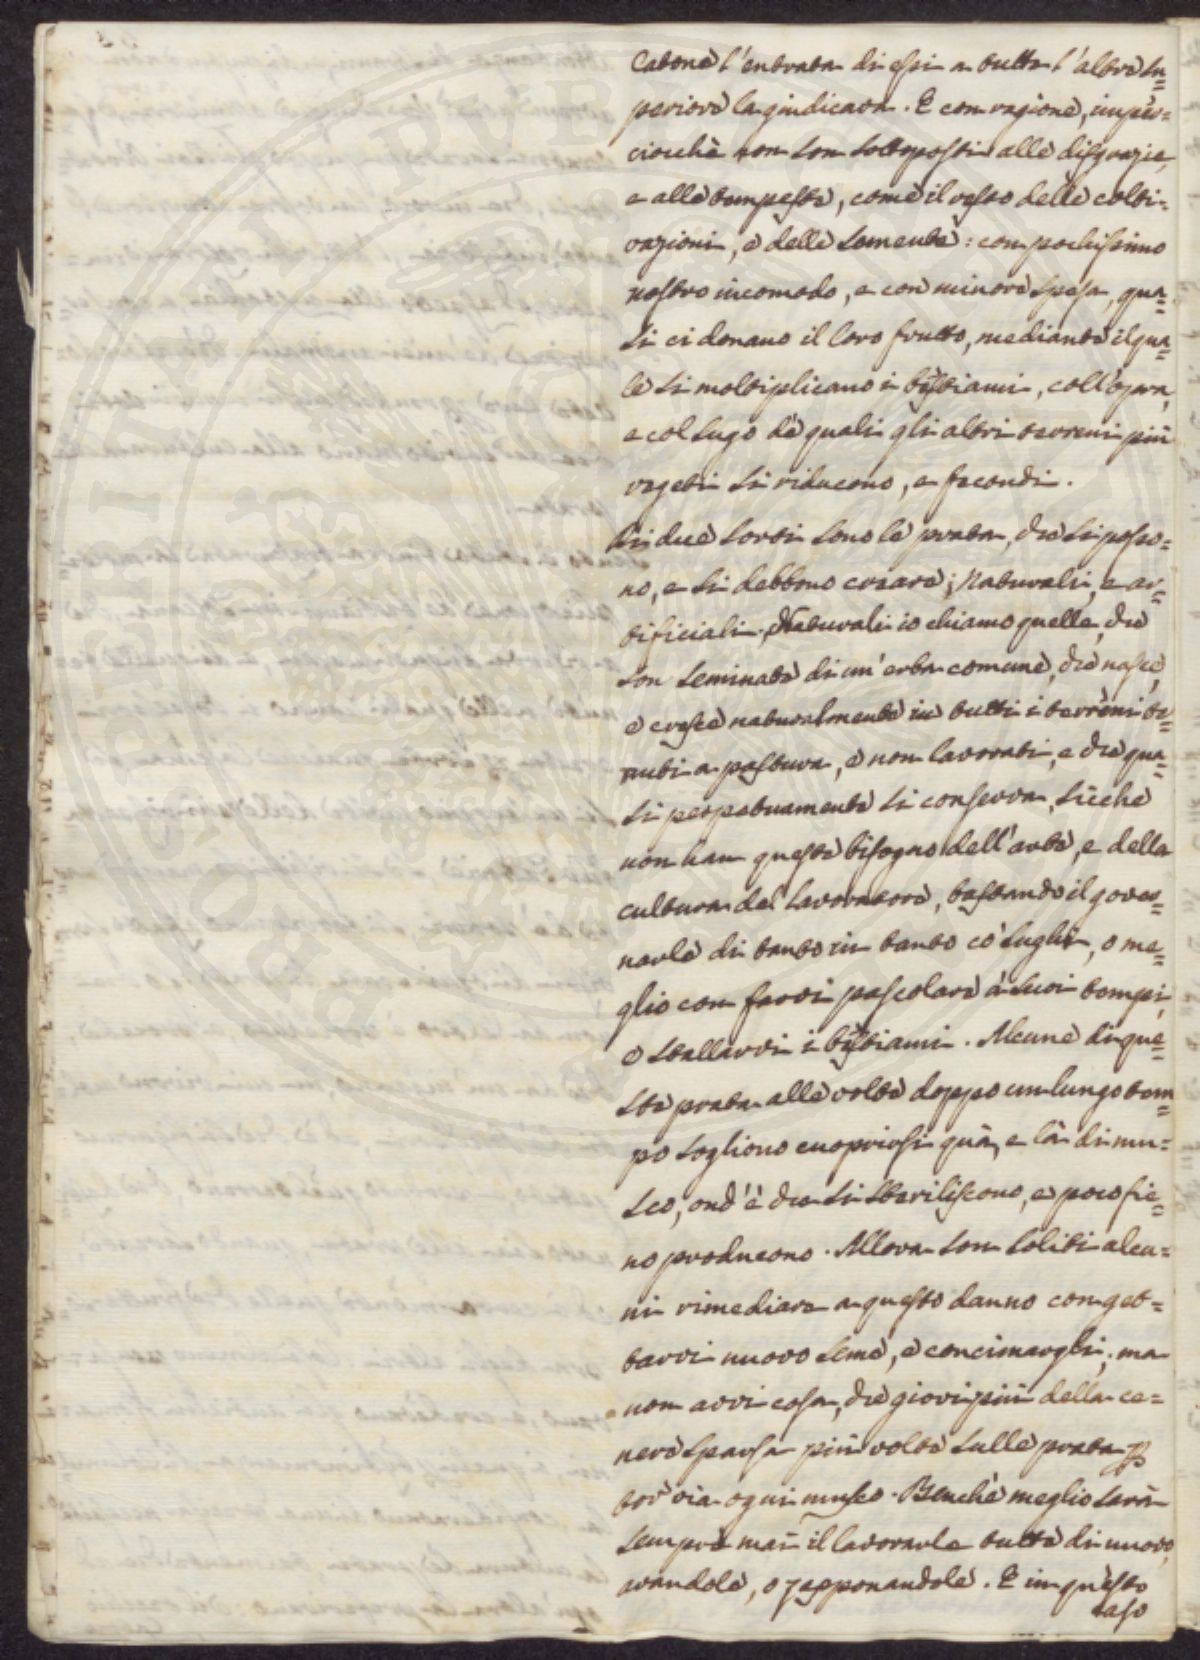 Catone l'entrata di essi a tutte l'altre su=
periore la giudicava. E con ragione, imper=
ciocchè non son sottoposti alle disgrazie,
e alle tempeste, come il resto delle colti=
vazioni, e delle semente: con pochissimo
nostro incomodo, e con minore spesa, qua=
si ci donano il loro frutto, mediante il qua=
le si moltiplicano i bestiami, coll'opra,
e col sugo de' quali gli altri terreni più
vegeti si riducono, e fecondi.
Di due sorti sono le prata, che si posso=
no, e si debbono creare; Naturali, e ar=
tificiali. Naturali io chiamo quelle, che
son seminate di un'erba comune, che nasce,
e cresce naturalmente in tutti i terreni te=
nuti a pastura, e non lavorati, e che qua=
si perpetuamente si conserva, sicche
non han queste bisogno dell'arte, e della
cultura del lavoratore, bastando il gover=
narle di tanto in tanto co' sughi, o me=
glio con farvi pascolare à suoi tempi,
e stallarvi i bestiami. Alcune di que=
ste prata alle volte doppo un lungo tem=
po sogliono cuoprirsi quà, e là di mu=
sco, ond'è che si steriliscono, e poco fie=
no producono. Allora son soliti alcu=
ni rimediare a questo danno con get=
tarvi nuovo seme, e concimargli; ma
non avvi cosa, che giovi più della ce=
nere sparsa più volte sulle prata p
tor via ogni musco. Benchè meglio sarà
sempre mai il lavorarle tutte di nuovo,
arandole, o zapponandole. E in questo
caso